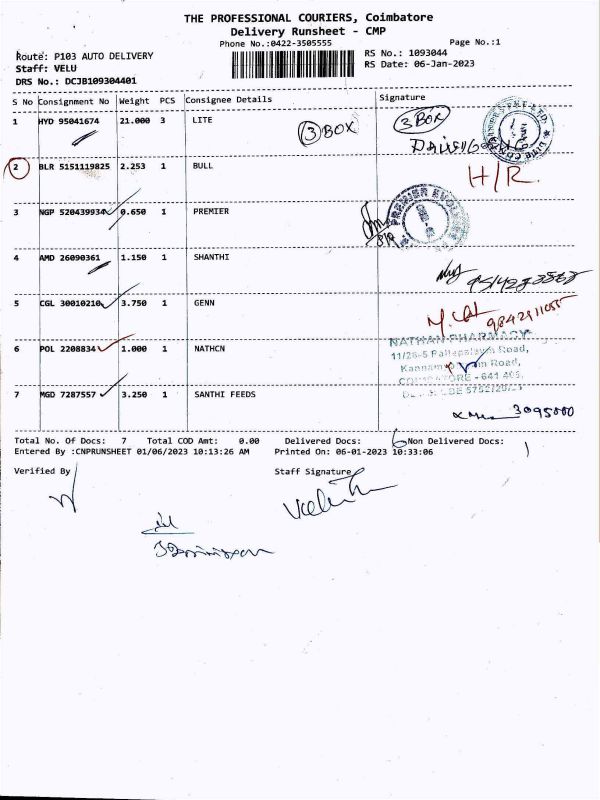 THE PROFESSIONAL COURIERS, Coimbatore
Delivery Runsheet - CMP
Phone No.:0422-3505555
Page No.:1
Route: P103 AUTO DELIVERY
RS No.: 1093044
Staff: VELU
RS Date: 06-Jan-2023
DRS No.: DCJB109304401
S No Consignment No Weight PCS Consignee Details Signature
1 HYD 95041674 21.000 3 LITE 3 BOX 3 BOX
2 BLR 5151119825 2.253 1 BULL H/R.
3 NGP 520439934 0.650 1 PREMIER
4 AMD 26090361 1.150 1 SHANTHI
5 CGL 30010210 3.750 1 GENN
6 POL 2208834 1.000 1 NATHCN
NATHAN PHARMACY
Road,
Road,
COIMBATORE - 641 405,
7 MGD 7287557 3.250 1 SANTHI FEEDS
3095000
Total No. Of Docs: 7 Total COD Amt: 0.00 Delivered Docs: 6 Non Delivered Docs: 1
Entered By :CNPRUNSHEET 01/06/2023 10:13:26 AM Printed On: 06-01-2023 10:33:06
Verified By Staff Signature